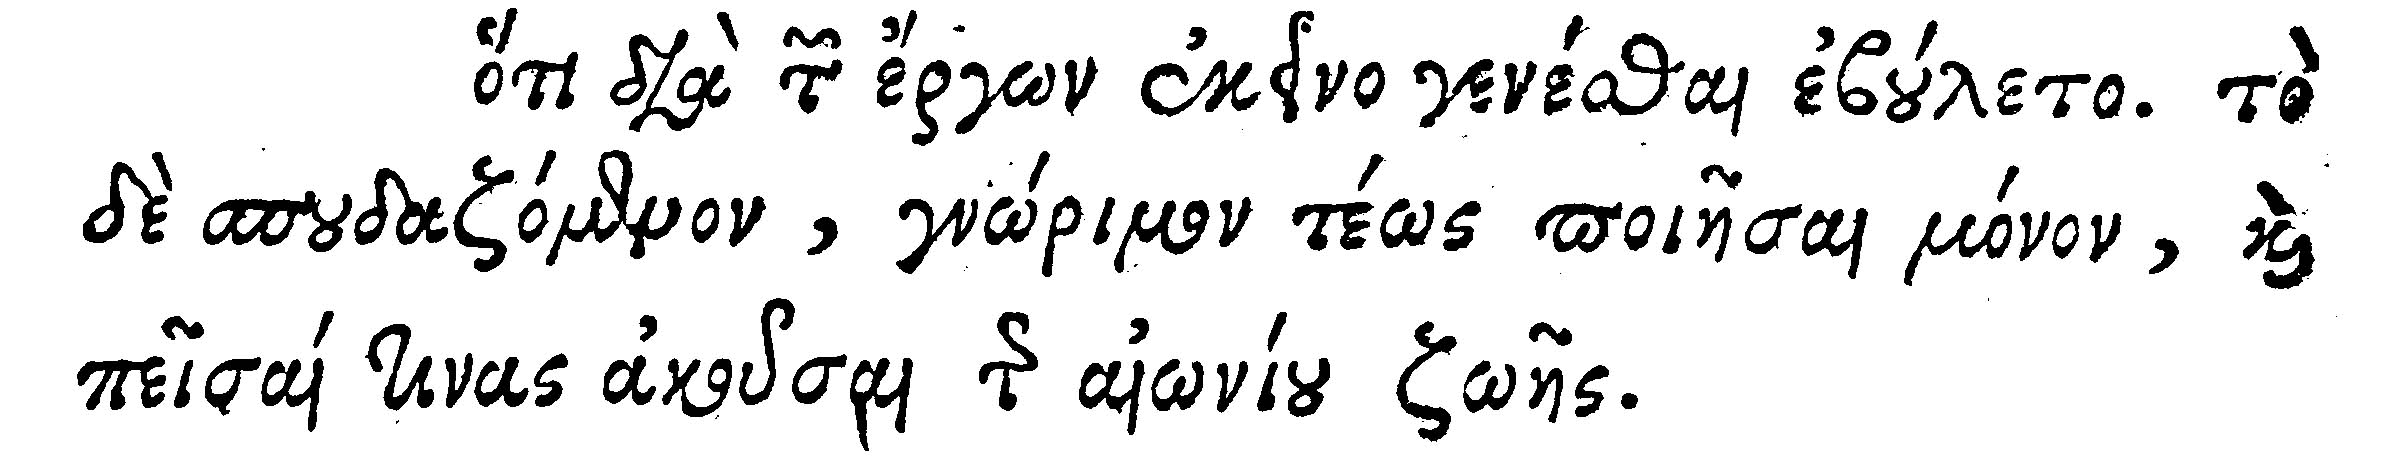 ὅτι διὰ τῶν ἔργων ἐκεῖνο γενέσθαι ἐβούλετο. τὸ
δὲ σπουδαζόμενον, γνώριμον τέως ποιῆσαι μόνον, καὶ
πεῖσαί τινας ἀκοῦσαι τῆς αἰωνίου ζωῆς.